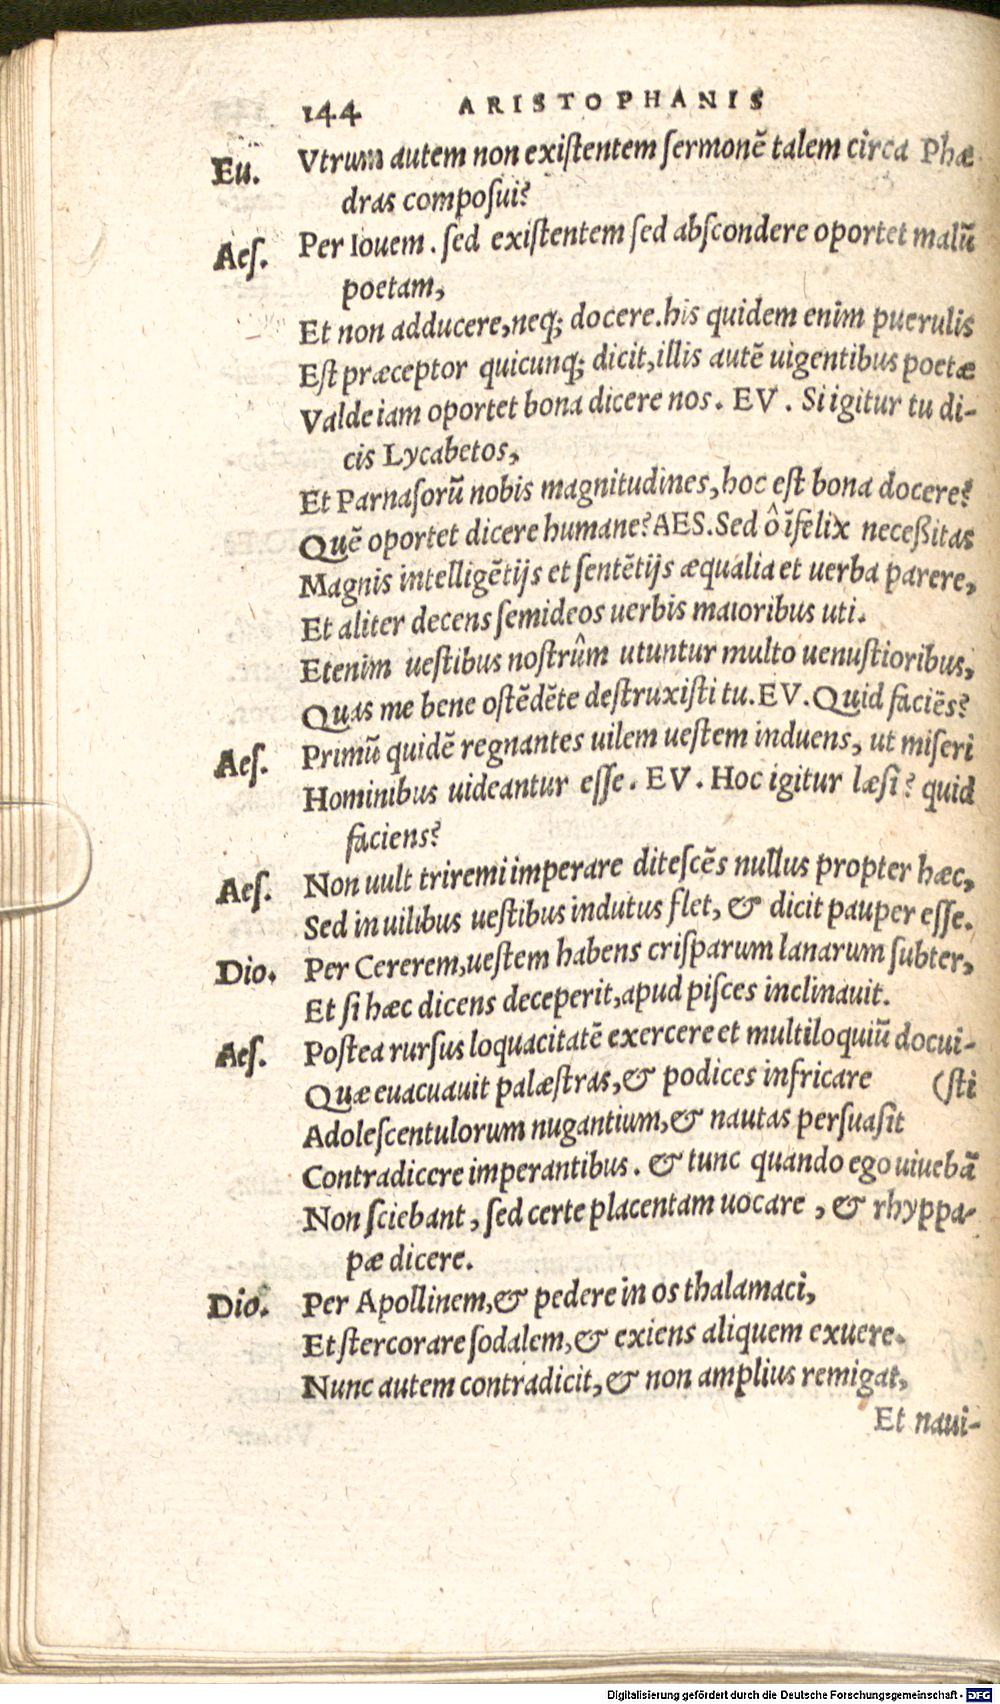 144 ARISTOPHANIS
Eu. Vtrum autem non exiſtentem ſermonē talem circa Phæ
dras compoſui?
Aeſ. Per Iouem . ſed exiſtentem ſed abſcondere oportet malū
poetam,
Et non adducere,neq; docere.his quidem enim puerulis
Eſt præceptor quicunq; dicit,illis autē uigentibus poetæ
Valde iam oportet bona dicere nos. EV . Si igitur tu di-
cis Lycabetos,
Et Parnaſorū nobis magnitudines,hoc eſt bona docere?
Quē oportet dicere humane? AES.Sed ô īfelix neceßitas
Magnis intelligētijs et ſentētijs æqualia et uerba parere,
Et aliter decens ſemideos uerbis maioribus uti.
Etenim ueſtibus noſtrûm utuntur multo uenuſtioribus,
Quas me bene oſtēdēte deſtruxiſti tu.EV.Quid faciēs?
Aeſ. Primū quidē regnantes uilem ueſtem induens, ut miſeri
Hominibus uideantur eſſe. EV. Hoc igitur læſi? quid
faciens?
Aeſ. Non uult triremi imperare diteſcēs nullus propter hæc,
Sed in uilibus ueſtibus indutus flet, & dicit pauper eſſe.
Dio. Per Cererem,ueſtem habens criſparum lanarum ſubter,
Et ſi hæc dicens deceperit,apud piſces inclinauit.
Aeſ. Poſtea rurſus loquacitatē exercere et multiloquiū docui-
Quæ euacuauit palæſtras,& podices infricare (ſti
Adoleſcentulorum nugantium,& nautas perſuaſit
Contradicere imperantibus. & tunc quando ego uiuebā
Non ſciebant, ſed certe placentam uocare , & rhyppa-
pæ dicere.
Dio. Per Apollinem,& pedere in os thalamaci,
Et ſtercorare ſodalem,& exiens aliquem exuere.
Nunc autem contradicit,& non amplius remigat,
Et naui-
Digitalisierung gefördert durch die Deutsche Forschungsgemeinschaft - DFG